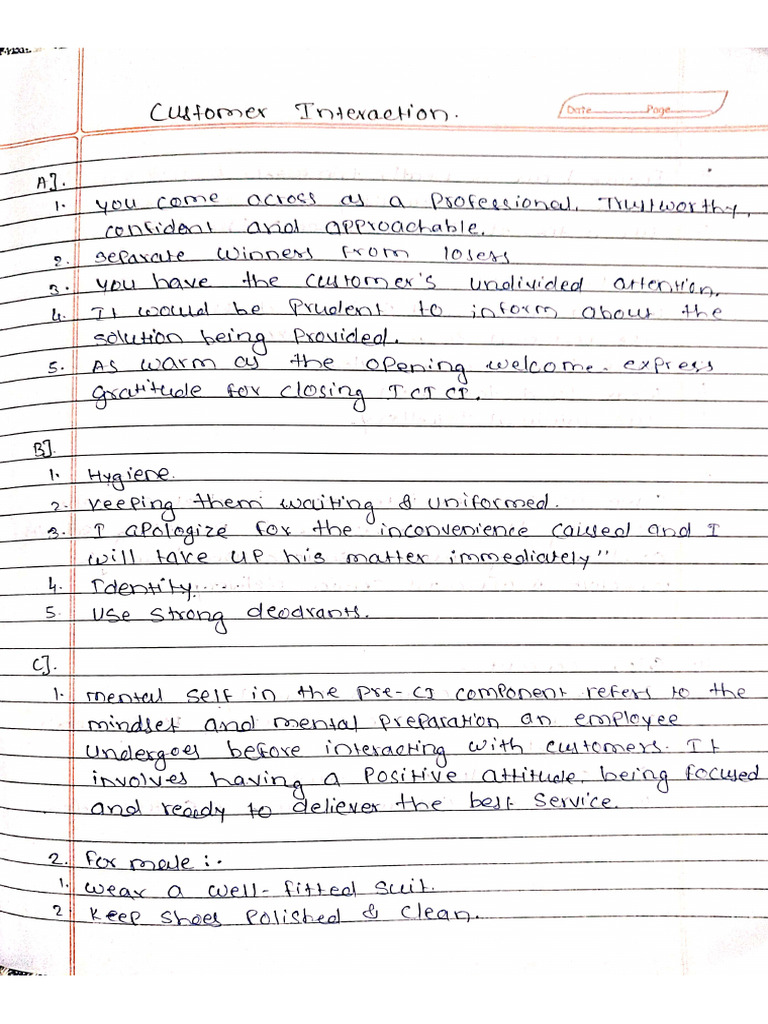 Customer Interaction.
Date Page
A].
1. you come across as a professional, Trustworthy,
confident and approachable.
2. separate winners from losers
3. you have the customer's undivided attention.
4. It would be Prudent to inform about the
solution being Provided.
5. As warm as the opening welcome. express
gratitude for closing ICICI.
B].
1. Hygiene.
2. keeping them waiting & uniformed.
3. I apologize for the inconvenience caused and I
will take up his matter immediately"
4. Identity....
5. Use strong deodrants.
C].
1. mental self in the pre-CI component refers to the
mindset and mental preparation an employee
undergoes before interacting with customers. It
involves having a positive attitude, being focused
and ready to deliever the best service.
2. for male :-
1. wear a well-fitted suit.
2 keep shoes Polished & clean.